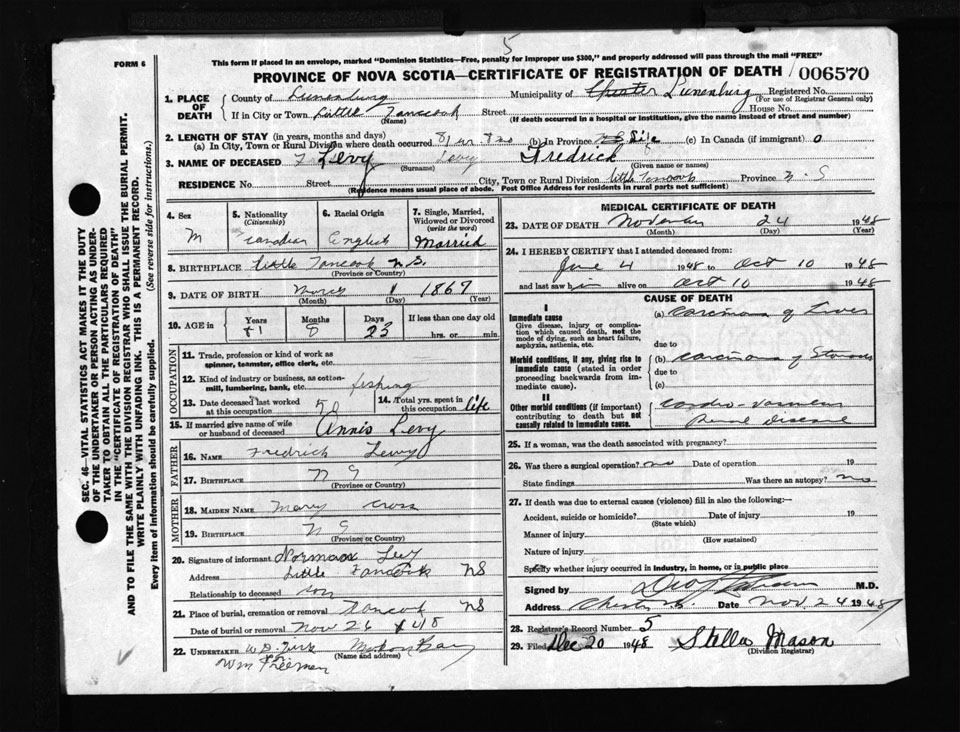 5
FORM 6
This form if placed in an envelope, marked "Dominion Statistics—Free, penalty for improper use $300," and properly addressed will pass through the mail "FREE"
PROVINCE OF NOVA SCOTIA—CERTIFICATE OF REGISTRATION OF DEATH
006570
SEC. 46—VITAL STATISTICS ACT MAKES IT THE DUTY
OF THE UNDERTAKER OR PERSON ACTING AS UNDER-
TAKER TO OBTAIN ALL THE PARTICULARS REQUIRED
IN THE "CERTIFICATE OF REGISTRATION OF DEATH"
AND TO FILE THE SAME WITH THE DIVISION REGISTRAR WHO SHALL ISSUE THE BURIAL PERMIT.
WRITE PLAINLY WITH UNFADING INK. THIS IS A PERMANENT RECORD.
Every item of information should be carefully supplied. (See reverse side for instructions.)
1. PLACE OF DEATH
County of Lunenburg Municipality of Chester Lunenburg Registered No.
(For use of Registrar General only)
If in City or Town Little Tancook Street House No.
(Name) (If death occurred in a hospital or institution, give the name instead of street and number)
2. LENGTH OF STAY (in years, months and days)
(a) In City, Town or Rural Division where death occurred 81 8 (b) In Province life (c) In Canada (if immigrant) 0
3. NAME OF DECEASED Levy Levy Fredrick
(Surname) (Given name or names)
RESIDENCE No. Street City, Town or Rural Division little Tancook Province N. S
(Residence means usual place of abode. Post Office Address for residents in rural parts not sufficient)
4. Sex
M
5. Nationality
(Citizenship)
Canadian
6. Racial Origin
English
7. Single, Married, Widowed or Divorced
(write the word)
Married
8. BIRTHPLACE Little Tancook N.S.
(Province or Country)
9. DATE OF BIRTH March 1 1867
(Month) (Day) (Year)
10. AGE in Years Months Days If less than one day
81 8 23 hrs. or min.
OCCUPATION
11. Trade, profession or kind of work as
spinner, teamster, office clerk, etc.
12. Kind of industry or business, as cotton-
mill, lumbering, bank, etc. fishing
13. Date deceased last worked
at this occupation 50
14. Total yrs. spent in
this occupation life
15. If married give name of wife
or husband of deceased Annis Levy
FATHER
16. Name Fredrick Levy
17. BIRTHPLACE N S
(Province or Country)
MOTHER
18. MAIDEN NAME Mary Cross
19. BIRTHPLACE N S
(Province or Country)
20. Signature of informant Norman Levy
Address Little Tancook NS
Relationship to deceased son
21. Place of burial, cremation or removal Tancook NS
Date of burial or removal Nov 26 1948
22. UNDERTAKER Mahone Bay
(Name and address)
Wm
MEDICAL CERTIFICATE OF DEATH
23. DATE OF DEATH November 24 1948
(Month) (Day) (Year)
24. I HEREBY CERTIFY that I attended deceased from:
June 4 1948 to Oct 10 1948
and last saw him alive on Oct 10 1948
CAUSE OF DEATH
I
Immediate cause
Give disease, injury or complica-
tion which caused death, not the
mode of dying, such as heart failure,
asphyxia, asthenia, etc.
(a) Carcinoma of Liver
due to
Morbid conditions, if any, giving rise to
immediate cause (stated in order
proceeding backwards from im-
mediate cause).
(b) Carcinoma of Stomach
due to
(c)
II
Other morbid conditions (if important)
contributing to death but not
causally related to immediate cause.
Cardio-vascular
Renal Disease
25. If a woman, was the death associated with pregnancy?
26. Was there a surgical operation? no Date of operation 19
State findings Was there an autopsy? no
27. If death was due to external causes (violence) fill in also the following:—
Accident, suicide or homicide? Date of injury 19
(State which)
Manner of injury
(How sustained)
Nature of injury
Specify whether injury occurred in industry, in home, or in public place
Signed by M.D.
Address Chester N.S. Date Nov. 24 1948
28. Registrar's Record Number 5
29. Filed Dec 20 1948 Stella Mason
(Division Registrar)